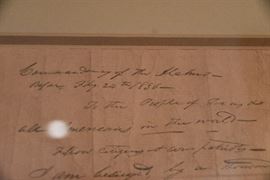 Commandancy of the Alamo—
Bejar, Feby. 24th 1836—
To the People of Texas &
all Americans in the world—
Fellow citizens & compatriots—
I am besieged, by a thousand